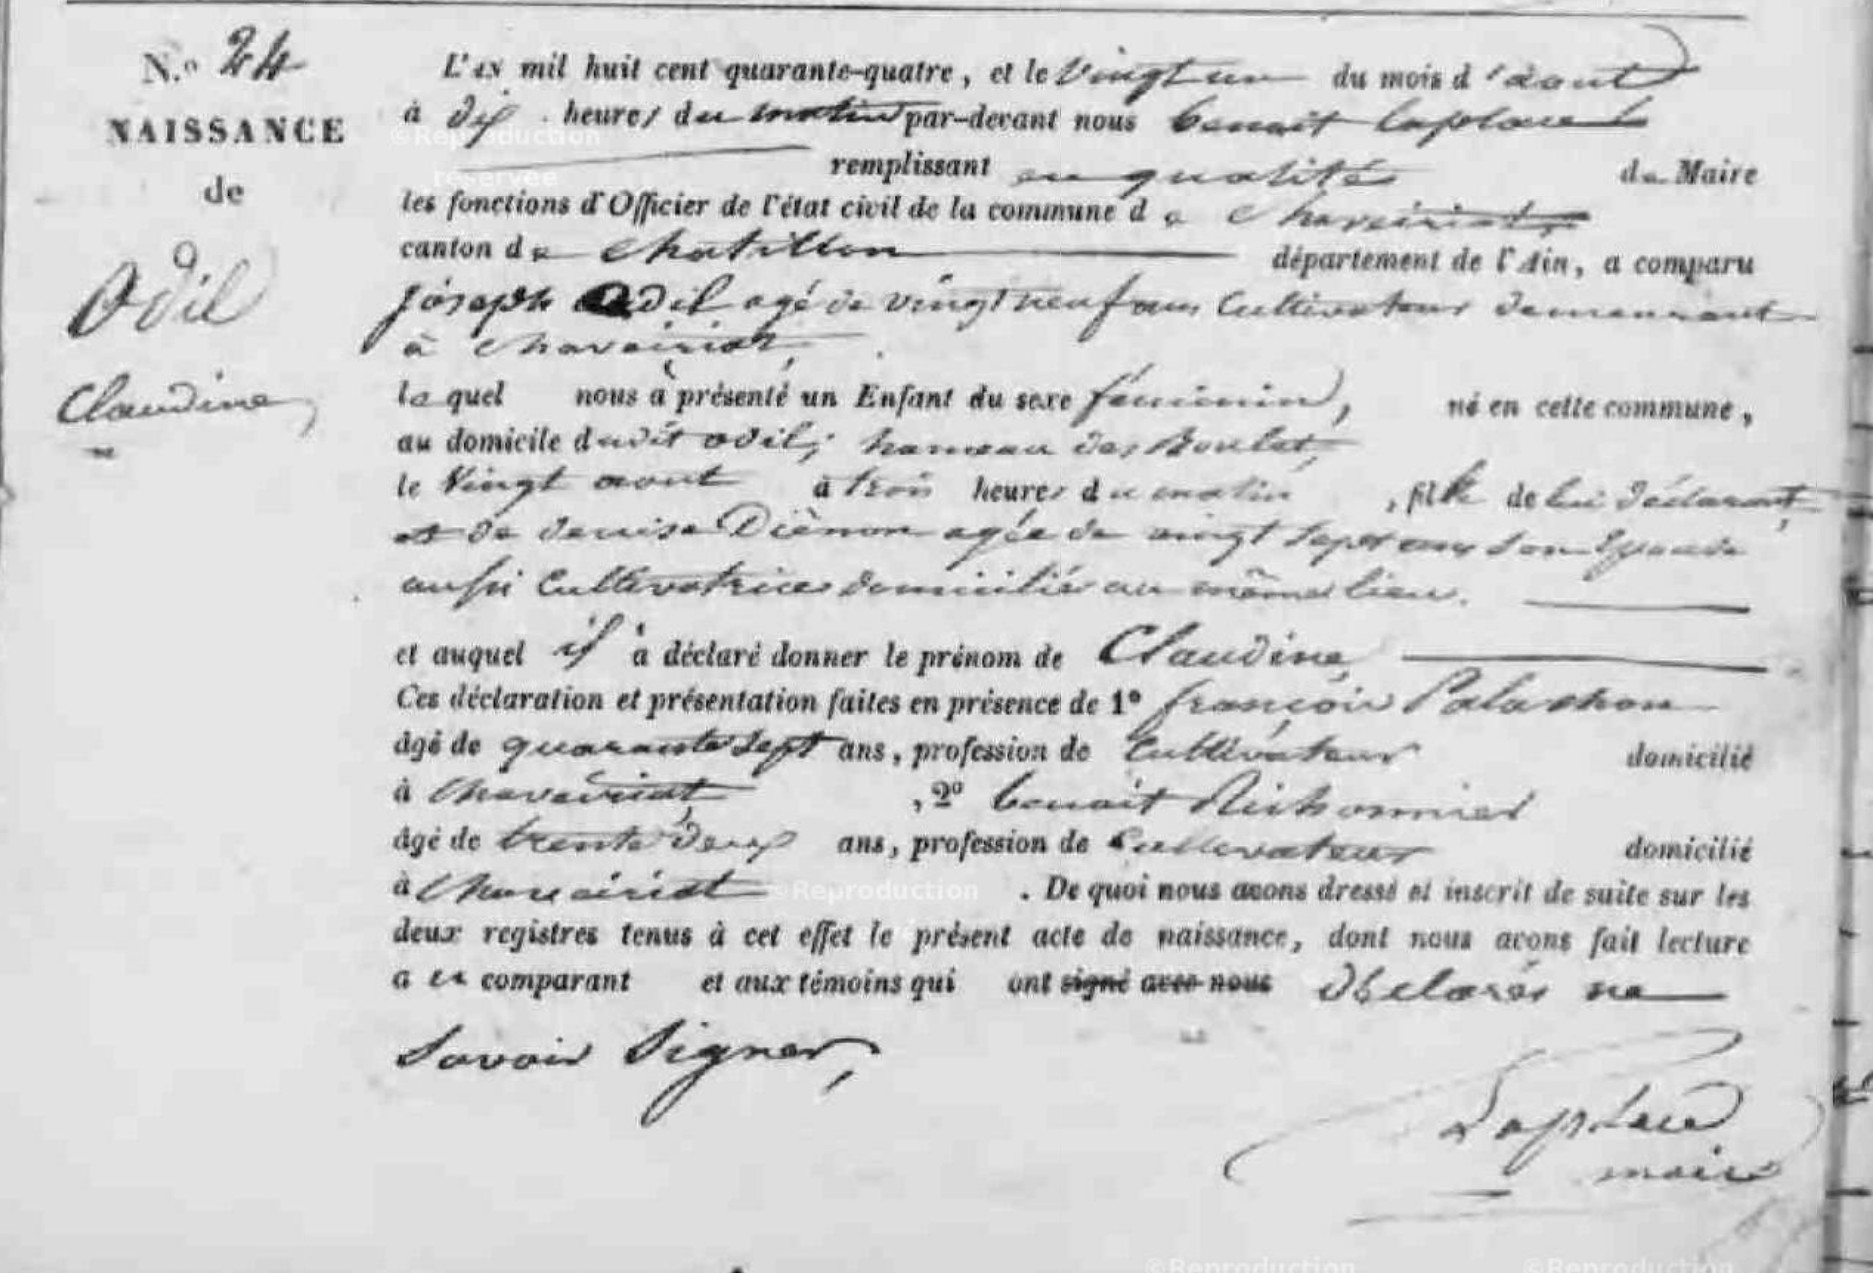 N.o 24
NAISSANCE
de
Odil
Claudine,
L'an mil huit cent quarante-quatre, et le vingt un du mois d'aout
à dix heures du matin par-devant nous benoit laplace
remplissant en qualité de Maire
les fonctions d'Officier de l'état civil de la commune de Chaveiriat,
canton de chatillon département de l'Ain, a comparu
joseph Odil agé de vingt neuf ans Cultivateur demeurant
à chaveiriat,
le quel nous à présenté un Enfant du sexe féminin, né en cette commune,
au domicile dudit odil, hameau des
le Vingt aout à trois heures du matin, fille de lui déclarant,
et de denise agée de vingt sept ans son Epouse
aussi Cultivatrice domicilié au même lieu.
et auquel il à déclaré donner le prénom de Claudine,
Ces déclaration et présentation faites en présence de 1º françois Palachon
âgé de quarante sept ans, profession de Cultivateur domicilié
à Chaveiriat, , 2º benoit
âgé de trente deux ans, profession de Cultivateur domicilié
à Chaveiriat . De quoi nous avons dressé et inscrit de suite sur les
deux registres tenus à cet effet le présent acte de naissance, dont nous avons fait lecture
a ce comparant et aux témoins qui ont signé avec nous déclarés ne
Savoir Signer,
Laplace
maire
©Reproduction
réservée
©Reproduction
©Reproduction
©Reproduction